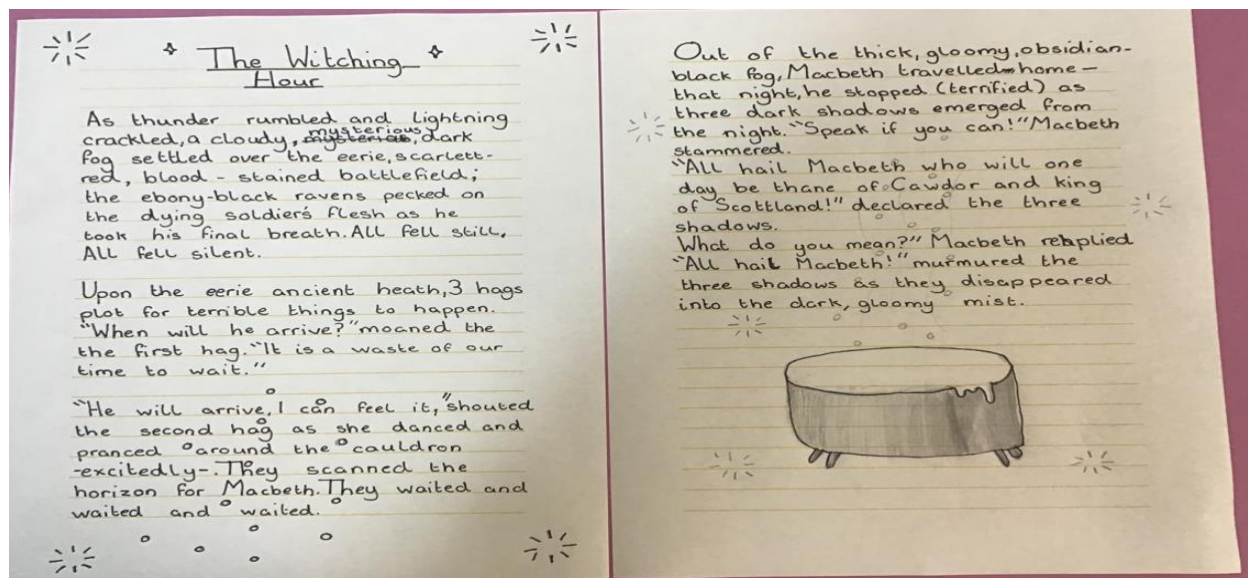 The Witching
Hour
As thunder rumbled and lightning
crackled, a cloudy, mysterious, dark
fog settled over the eerie, scarlett-
red, blood-stained battlefield;
the ebony-black ravens pecked on
the dying soldier's flesh as he
took his final breath. All fell still,
All fell silent.
Upon the eerie ancient heath, 3 hags
plot for terrible things to happen.
"When will he arrive?" moaned the
the first hag. "It is a waste of our
time to wait."
"He will arrive, I can feel it," shouted
the second hag as she danced and
pranced around the cauldron
-excitedly-. They scanned the
horizon for Macbeth. They waited and
waited and waited.
Out of the thick, gloomy, obsidian-
black fog, Macbeth travelled home-
that night, he stopped (terrified) as
three dark shadows emerged from
the night. "Speak if you can!" Macbeth
stammered.
"All hail Macbeth who will one
day be thane of Cawdor and king
of Scottland!" declared the three
shadows.
What do you mean?" Macbeth replied
"All hail Macbeth!" murmured the
three shadows as they disappeared
into the dark, gloomy mist.